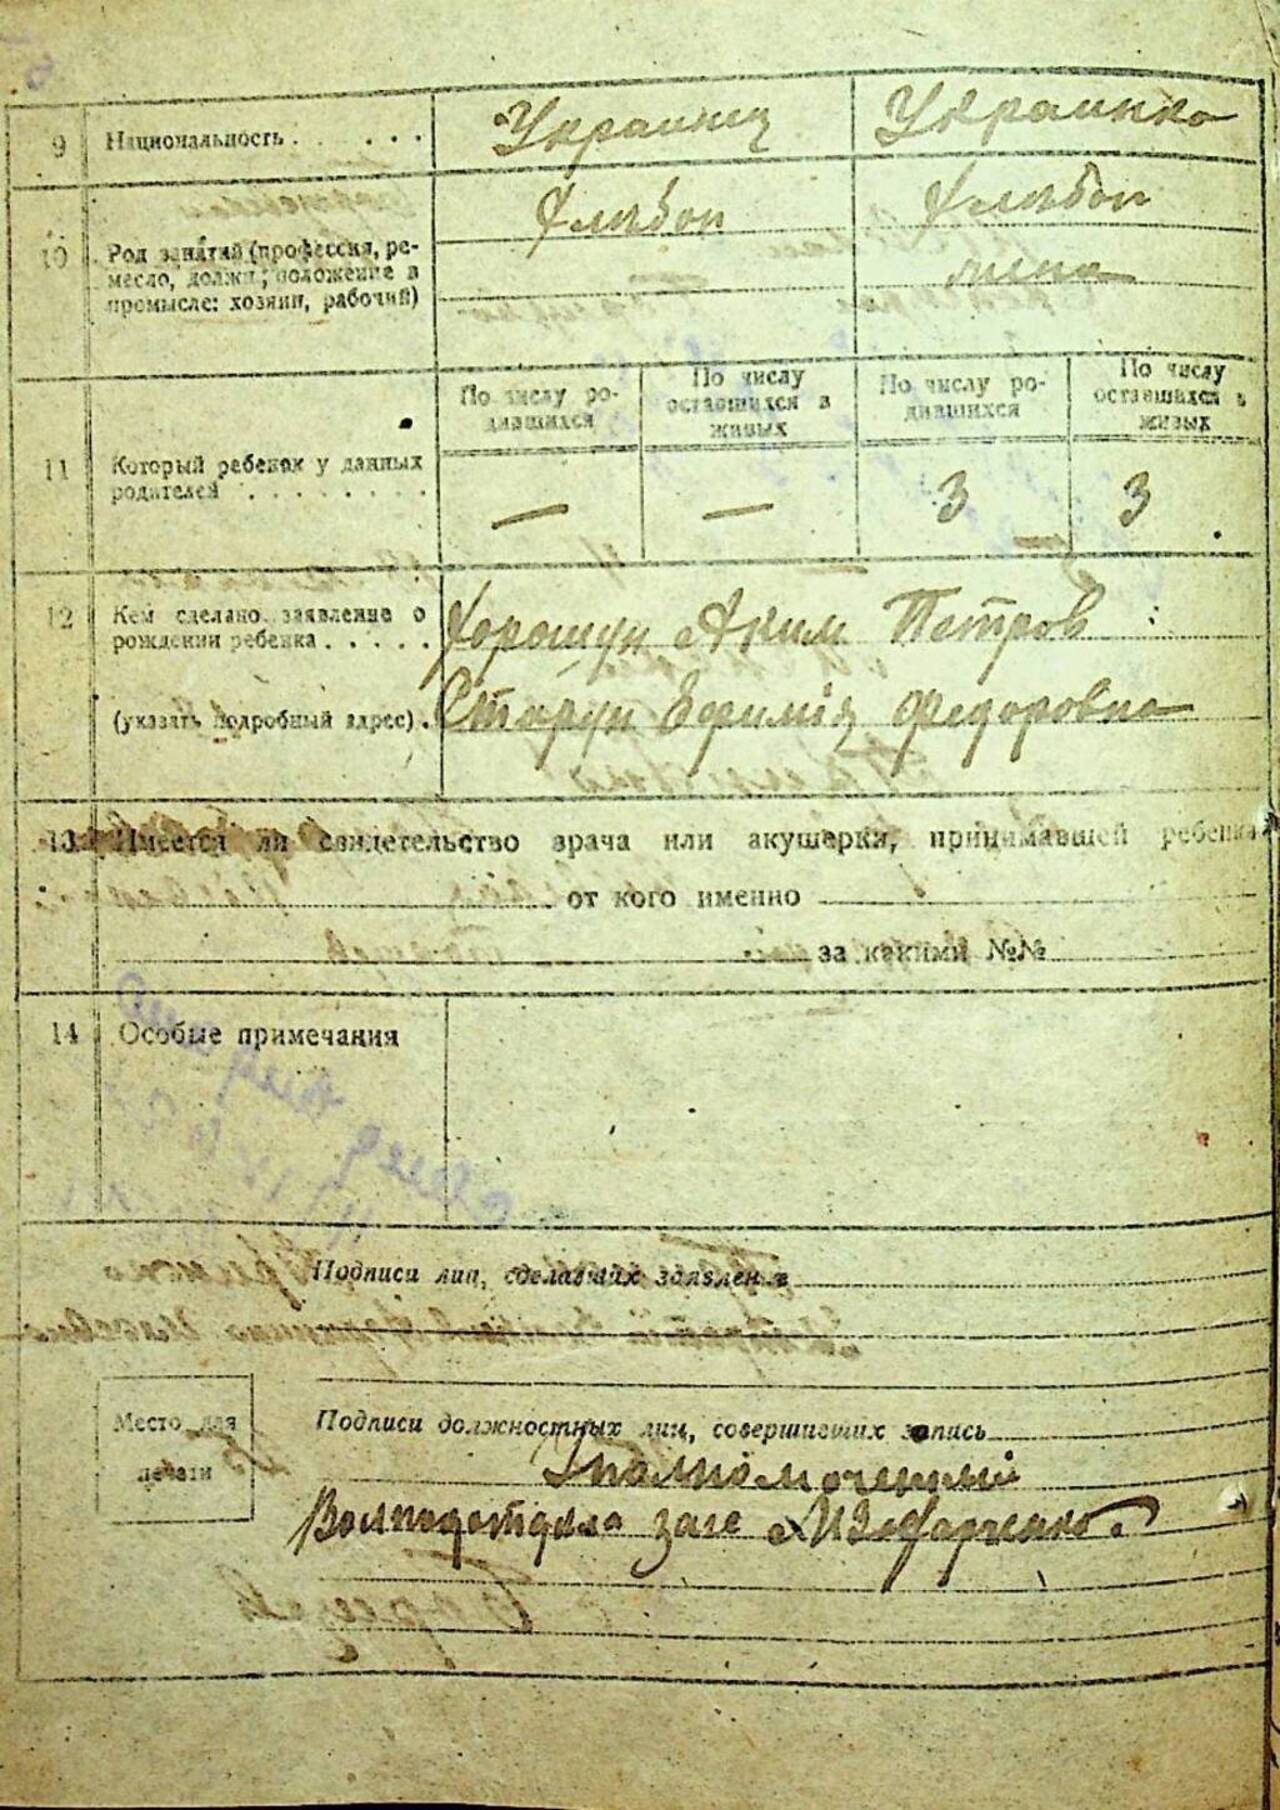 9 Национальность . . . . . Украинец Украинка
Хлебоп Хлебоп
10 Род занятий (профессия, ре-
месло, должн., положение в
промысле: хозяин, рабочий)
По числу ро-
дившихся
По числу
оставшихся в
живых
По числу ро-
дившихся
По числу
оставшихся в
живых
11 Который ребенок у данных
родителей . . . . . . . . — — 3 3
12 Кем сделано заявление о
рождении ребенка . . . . . Хорошун Аким Петров
(указать подробный адрес) . Стогун Ефимія Федоровна
13 Имеется ли свидетельство врача или акушерки, принимавшей ребенка
от кого именно
за какими №№
14 Особые примечания
Подписи лиц, сделавших заявление
Место для
печати
Подписи должностных лиц, совершивших запись
Уполномоченный
Волподотдела загс